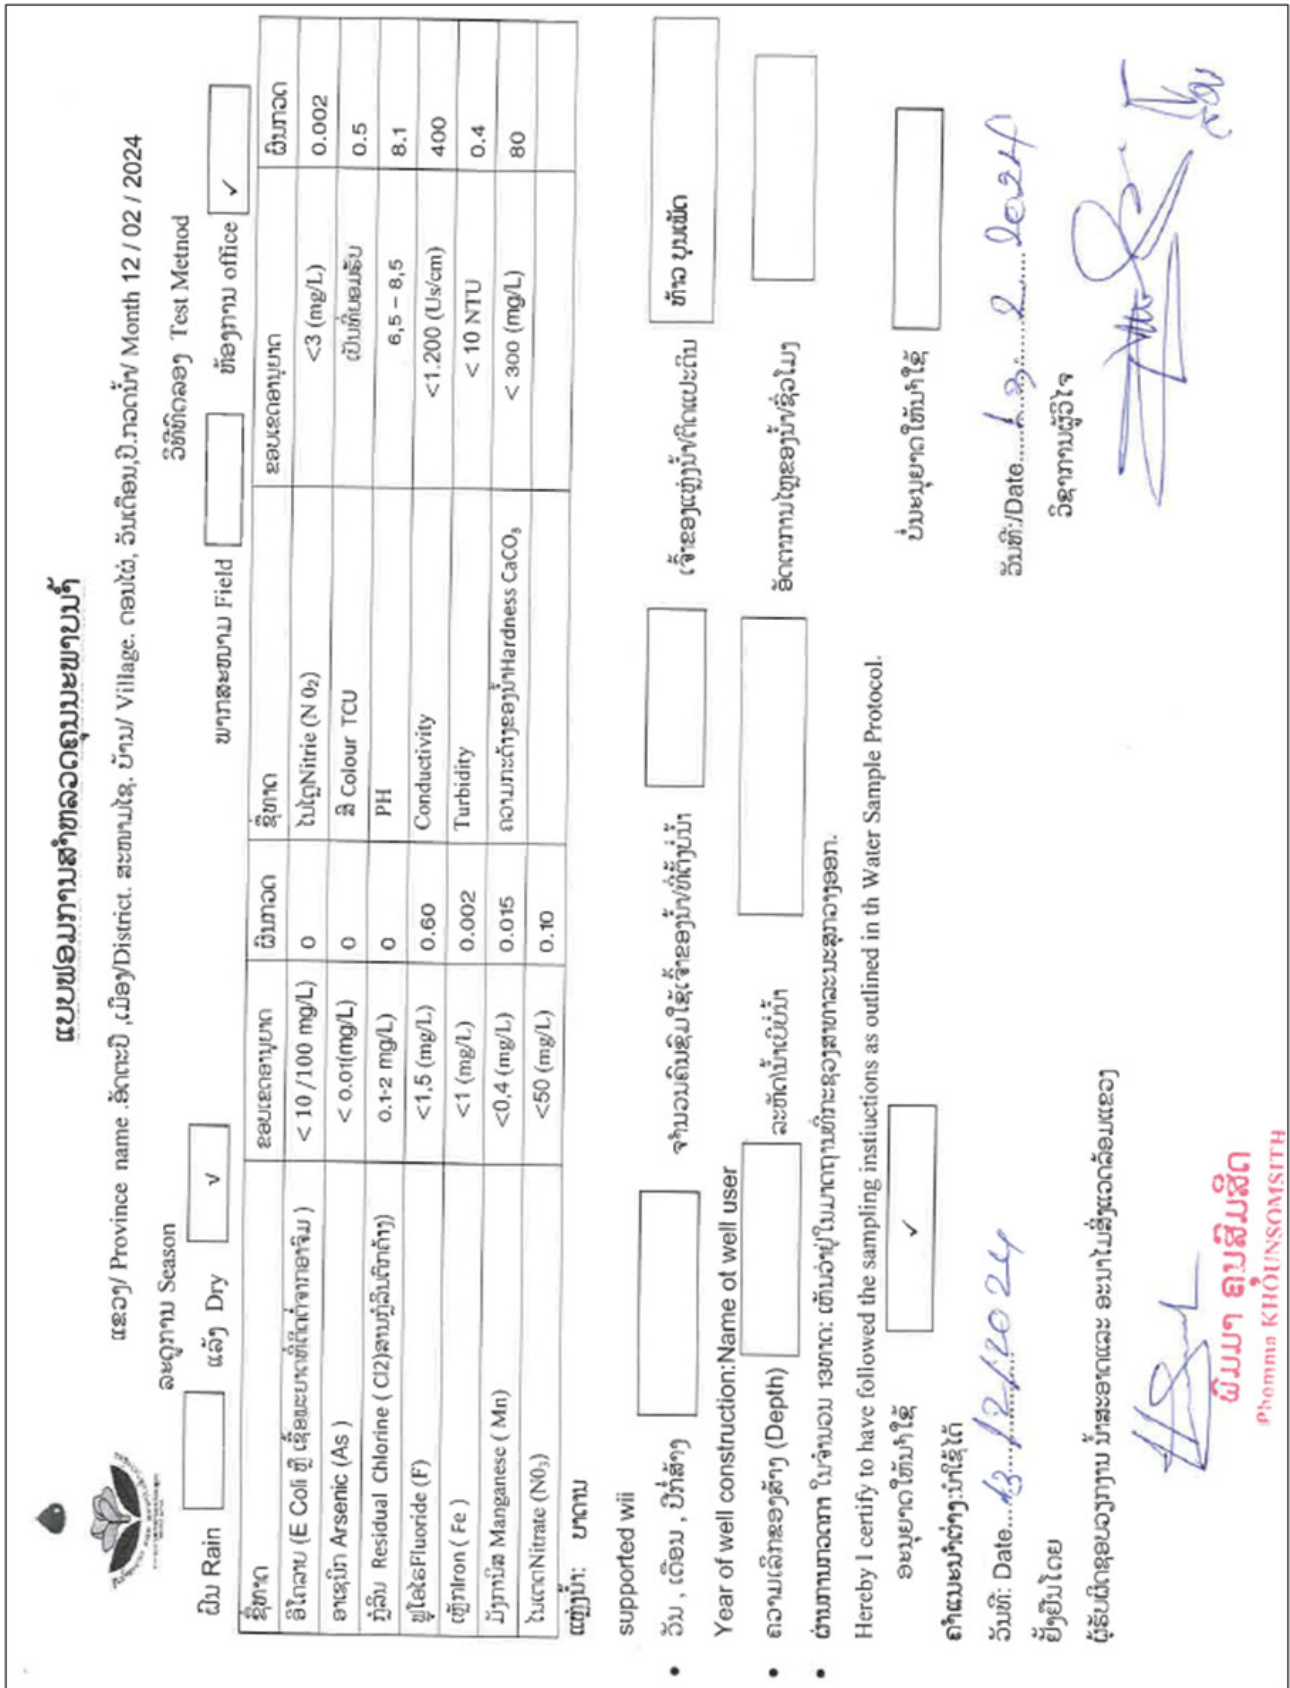 ແບບຟອມການສຳຫລວດຄຸນນະພາບນ້ຳ
ແຂວງ/ Province name .ອັດຕະປື ,ເມືອງ/District. ສະໜາມໄຊ. ບ້ານ/ Village. ດອນໄຜ່, ວັນເດືອນ,ປີ.ກວດນ້ຳ/ Month 12 / 02 / 2024
ລະດູການ Season
ວິທີທົດລອງ Test Metnod
ຝົນ Rain
ແລ້ງ Dry √
ພາກສະໜາມ Field
ຫ້ອງການ office ✓
ຊື່ທາດ ຂອບເຂດອານຸຍາດ ຜົນກວດ ຊື່ທາດ ຂອບເຂດອານຸຍາດ ຜົນກວດ
ອີໂຄລາຍ (E Coli ຫຼື ເຊື້ອພະຍາດທີ່ຕິດຕໍ່ຈາກອາຈົມ ) < 10 /100 mg/L) 0 ໄນໄຕຼNitrie (N 0₂) <3 (mg/L) 0.002
ອາເຊນິກ Arsenic (As ) < 0.01(mg/L) 0 ສີ Colour TCU ເປັນທີ່ຍອມຮັບ 0.5
ກຼໍລີນ Residual Chlorine ( Cl2)ສານກຼໍລີນຕົກຄ້າງ) 0.1-2 mg/L) 0 PH 6,5 – 8,5 8.1
ຟູໂລໄຣFluoride (F) <1,5 (mg/L) 0.60 Conductivity <1.200 (Us/cm) 400
ເຫຼັກIron ( Fe ) <1 (mg/L) 0.002 Turbidity < 10 NTU 0.4
ມັງການິສ Manganese ( Mn) <0,4 (mg/L) 0.015 ຄວາມກະດ້າງຂອງນ້ຳHardness CaCO₃ < 300 (mg/L) 80
ໄນເຕດNitrate (N0₃) <50 (mg/L) 0.10
ແຫຼ່ງນ້ຳ: ບາດານ
supported wii
• ວັນ , ເດືອນ , ປີກໍ່ສ້າງ
ຈຳນວນຄົນຊົມໃຊ້ເຈົ້າຂອງນ້ຳ/ທີ່ຕັ້ງບໍ່ນ້ຳ
ເຈົ້າຂອງແຫຼ່ງນ້ຳ/ຕິດແປະດິນ ທ້າວ ບຸນເພັດ
Year of well construction:Name ot well user
• ຄວາມເລິກຂອງສ້າງ (Depth)
ລະຫັດ\ນ້ຳເບີບໍ່ນ້ຳ
ອັດຕາການໄຫຼຂອງນ້ຳ/ຊົ່ວໂມງ
• ຜ່ານການກວດກາ ໃນຈຳນວນ 13ທາດ: ເຫັນວ່າຢູ່ໃນມາດຖານທີ່ກະຊວງສາທາລະນະສຸກວາງອອກ.
Hereby I certify to have followed the sampling instiuctions as outlined in th Water Sample Protocol.
ອະນຸຍາດໃຫ້ນຳໃຊ້ ✓
ບໍ່ນະນຸຍາດໃຫ້ນຳໃຊ້
ຄຳແນະນຳຕ່າງໆ:ນຳໃຊ້ໄດ້
ວັນທີ: Date...13/2/2024
ວັນທີ:/Date.....13...2...2024
ຢັ້ງຢືນໂດຍ
ວິຊາການຜູ້ວິໄຈ
ຜູ້ຮັບຜິດຊອບວຽກງານ ນ້ຳສະອາດແລະ ອະນາໄມສິ່ງແວດລ້ອມແຂວງ
ພົມມາ ຄຸນສົມສິດ
Phomma KHOUNSOMSITH